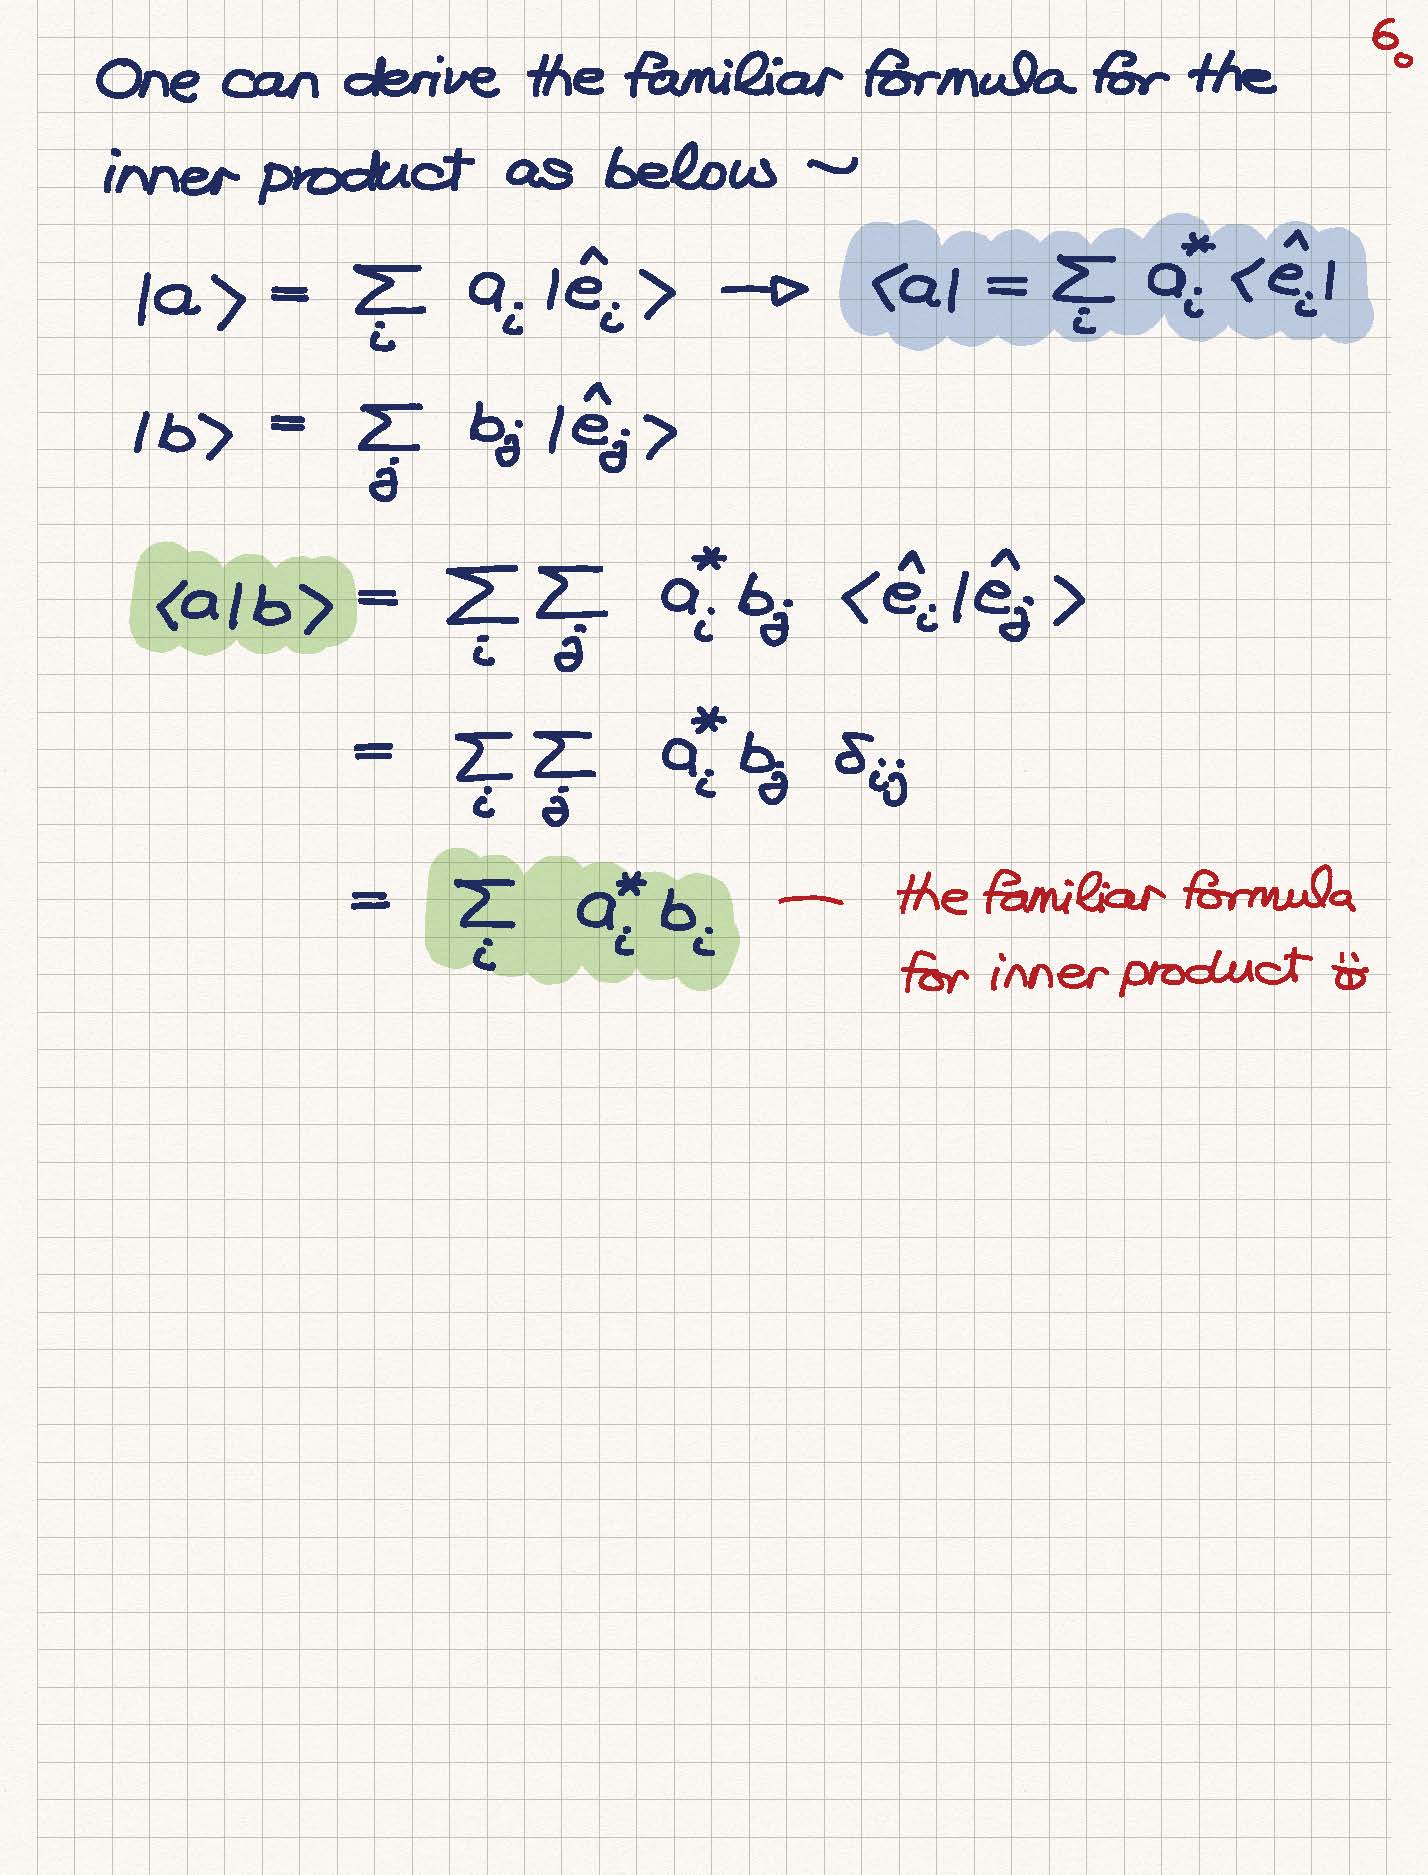 6.
One can derive the familiar formula for the
inner product as below ~
|a> = Σ_i a_i |ê_i> → <a| = Σ_i a_i^* <ê_i|
|b> = Σ_j b_j |ê_j>
<a|b> = Σ_i Σ_j a_i^* b_j <ê_i|ê_j>
= Σ_i Σ_j a_i^* b_j δ_ij
= Σ_i a_i^* b_i — the familiar formula
for inner product